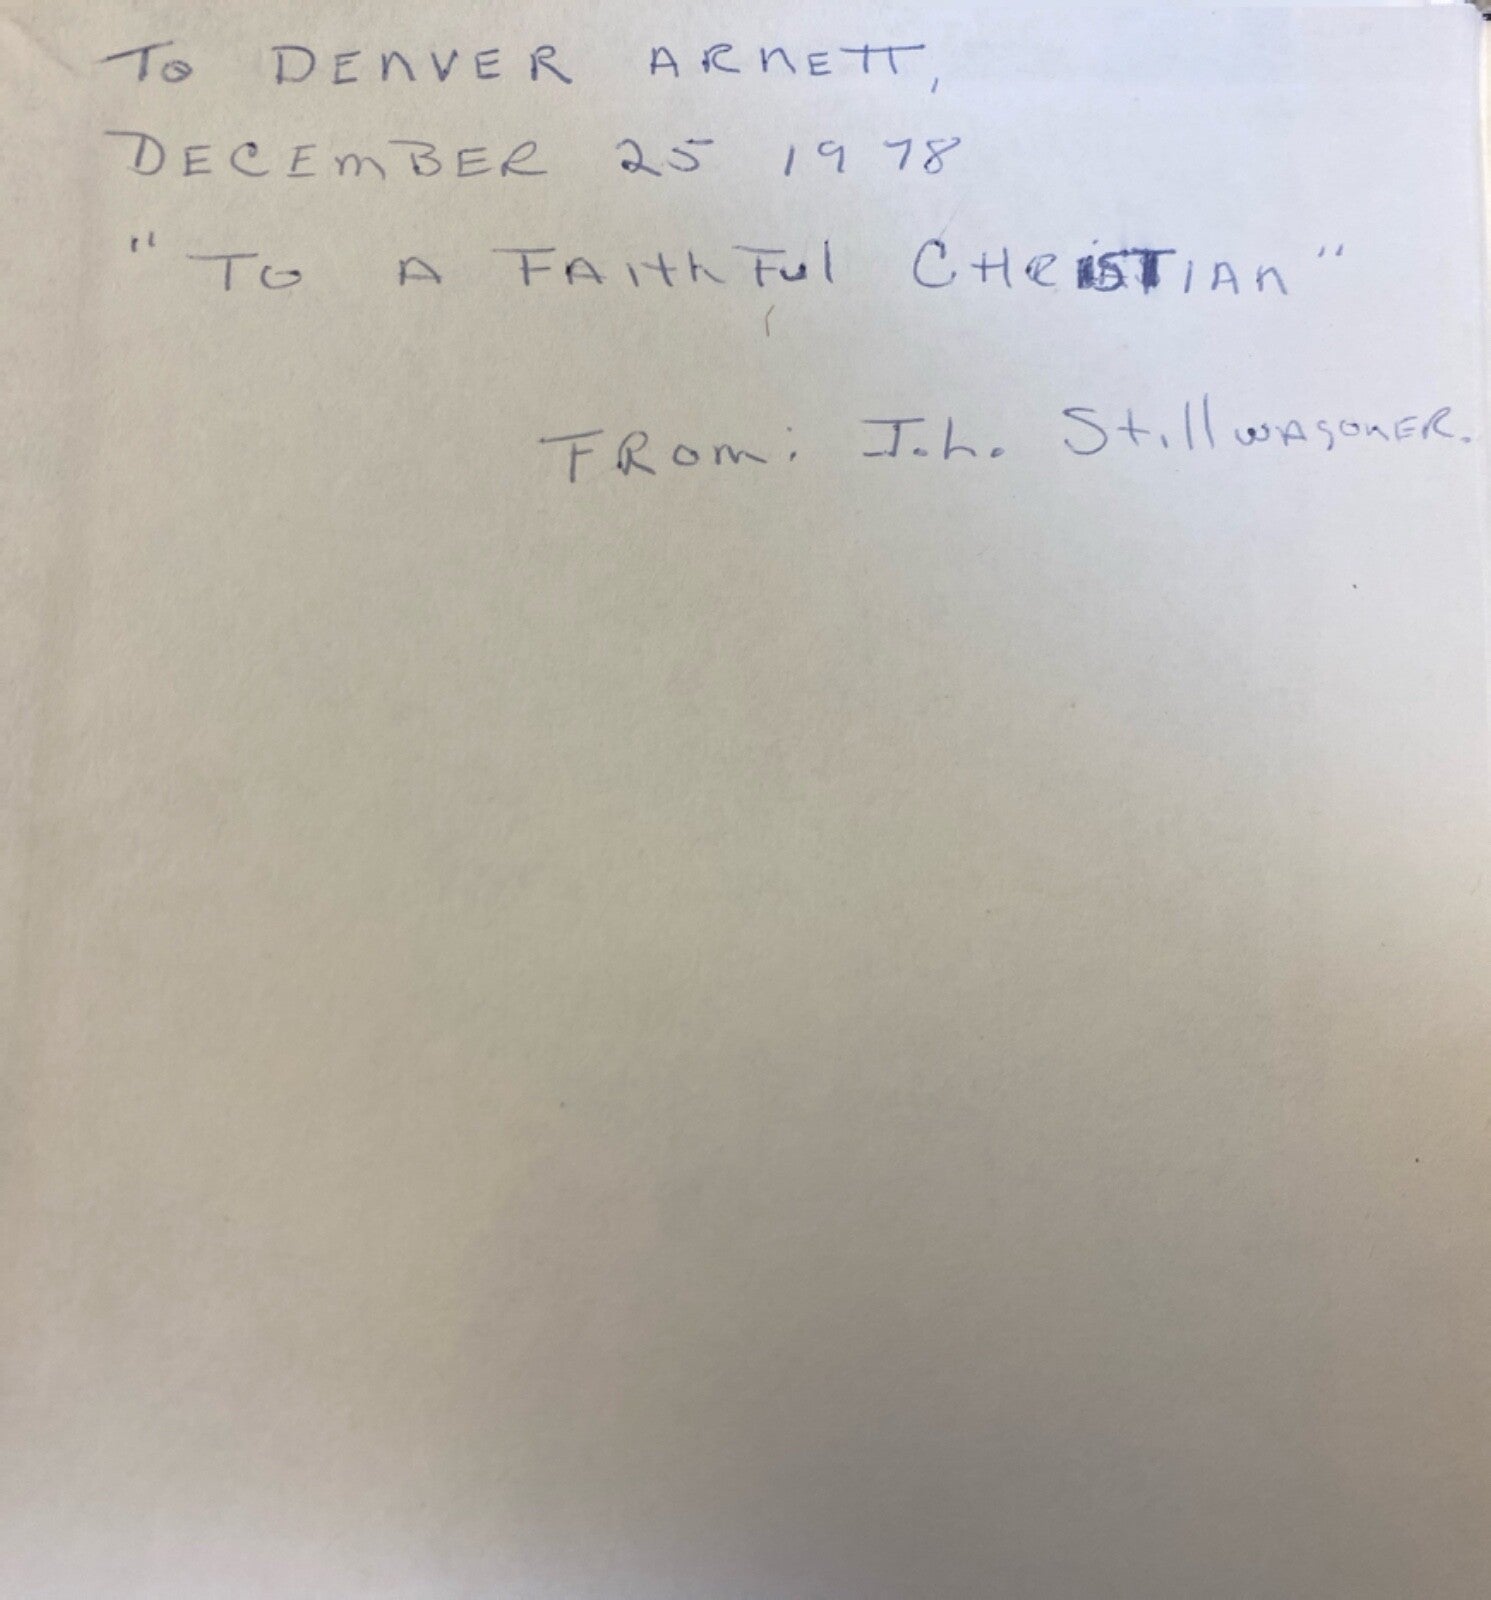 To DENVER ARNETT,
DECEMBER 25 1978
"To A FAIthFul CHRISTIAN"
FROM: J.L. StillWAGONER.